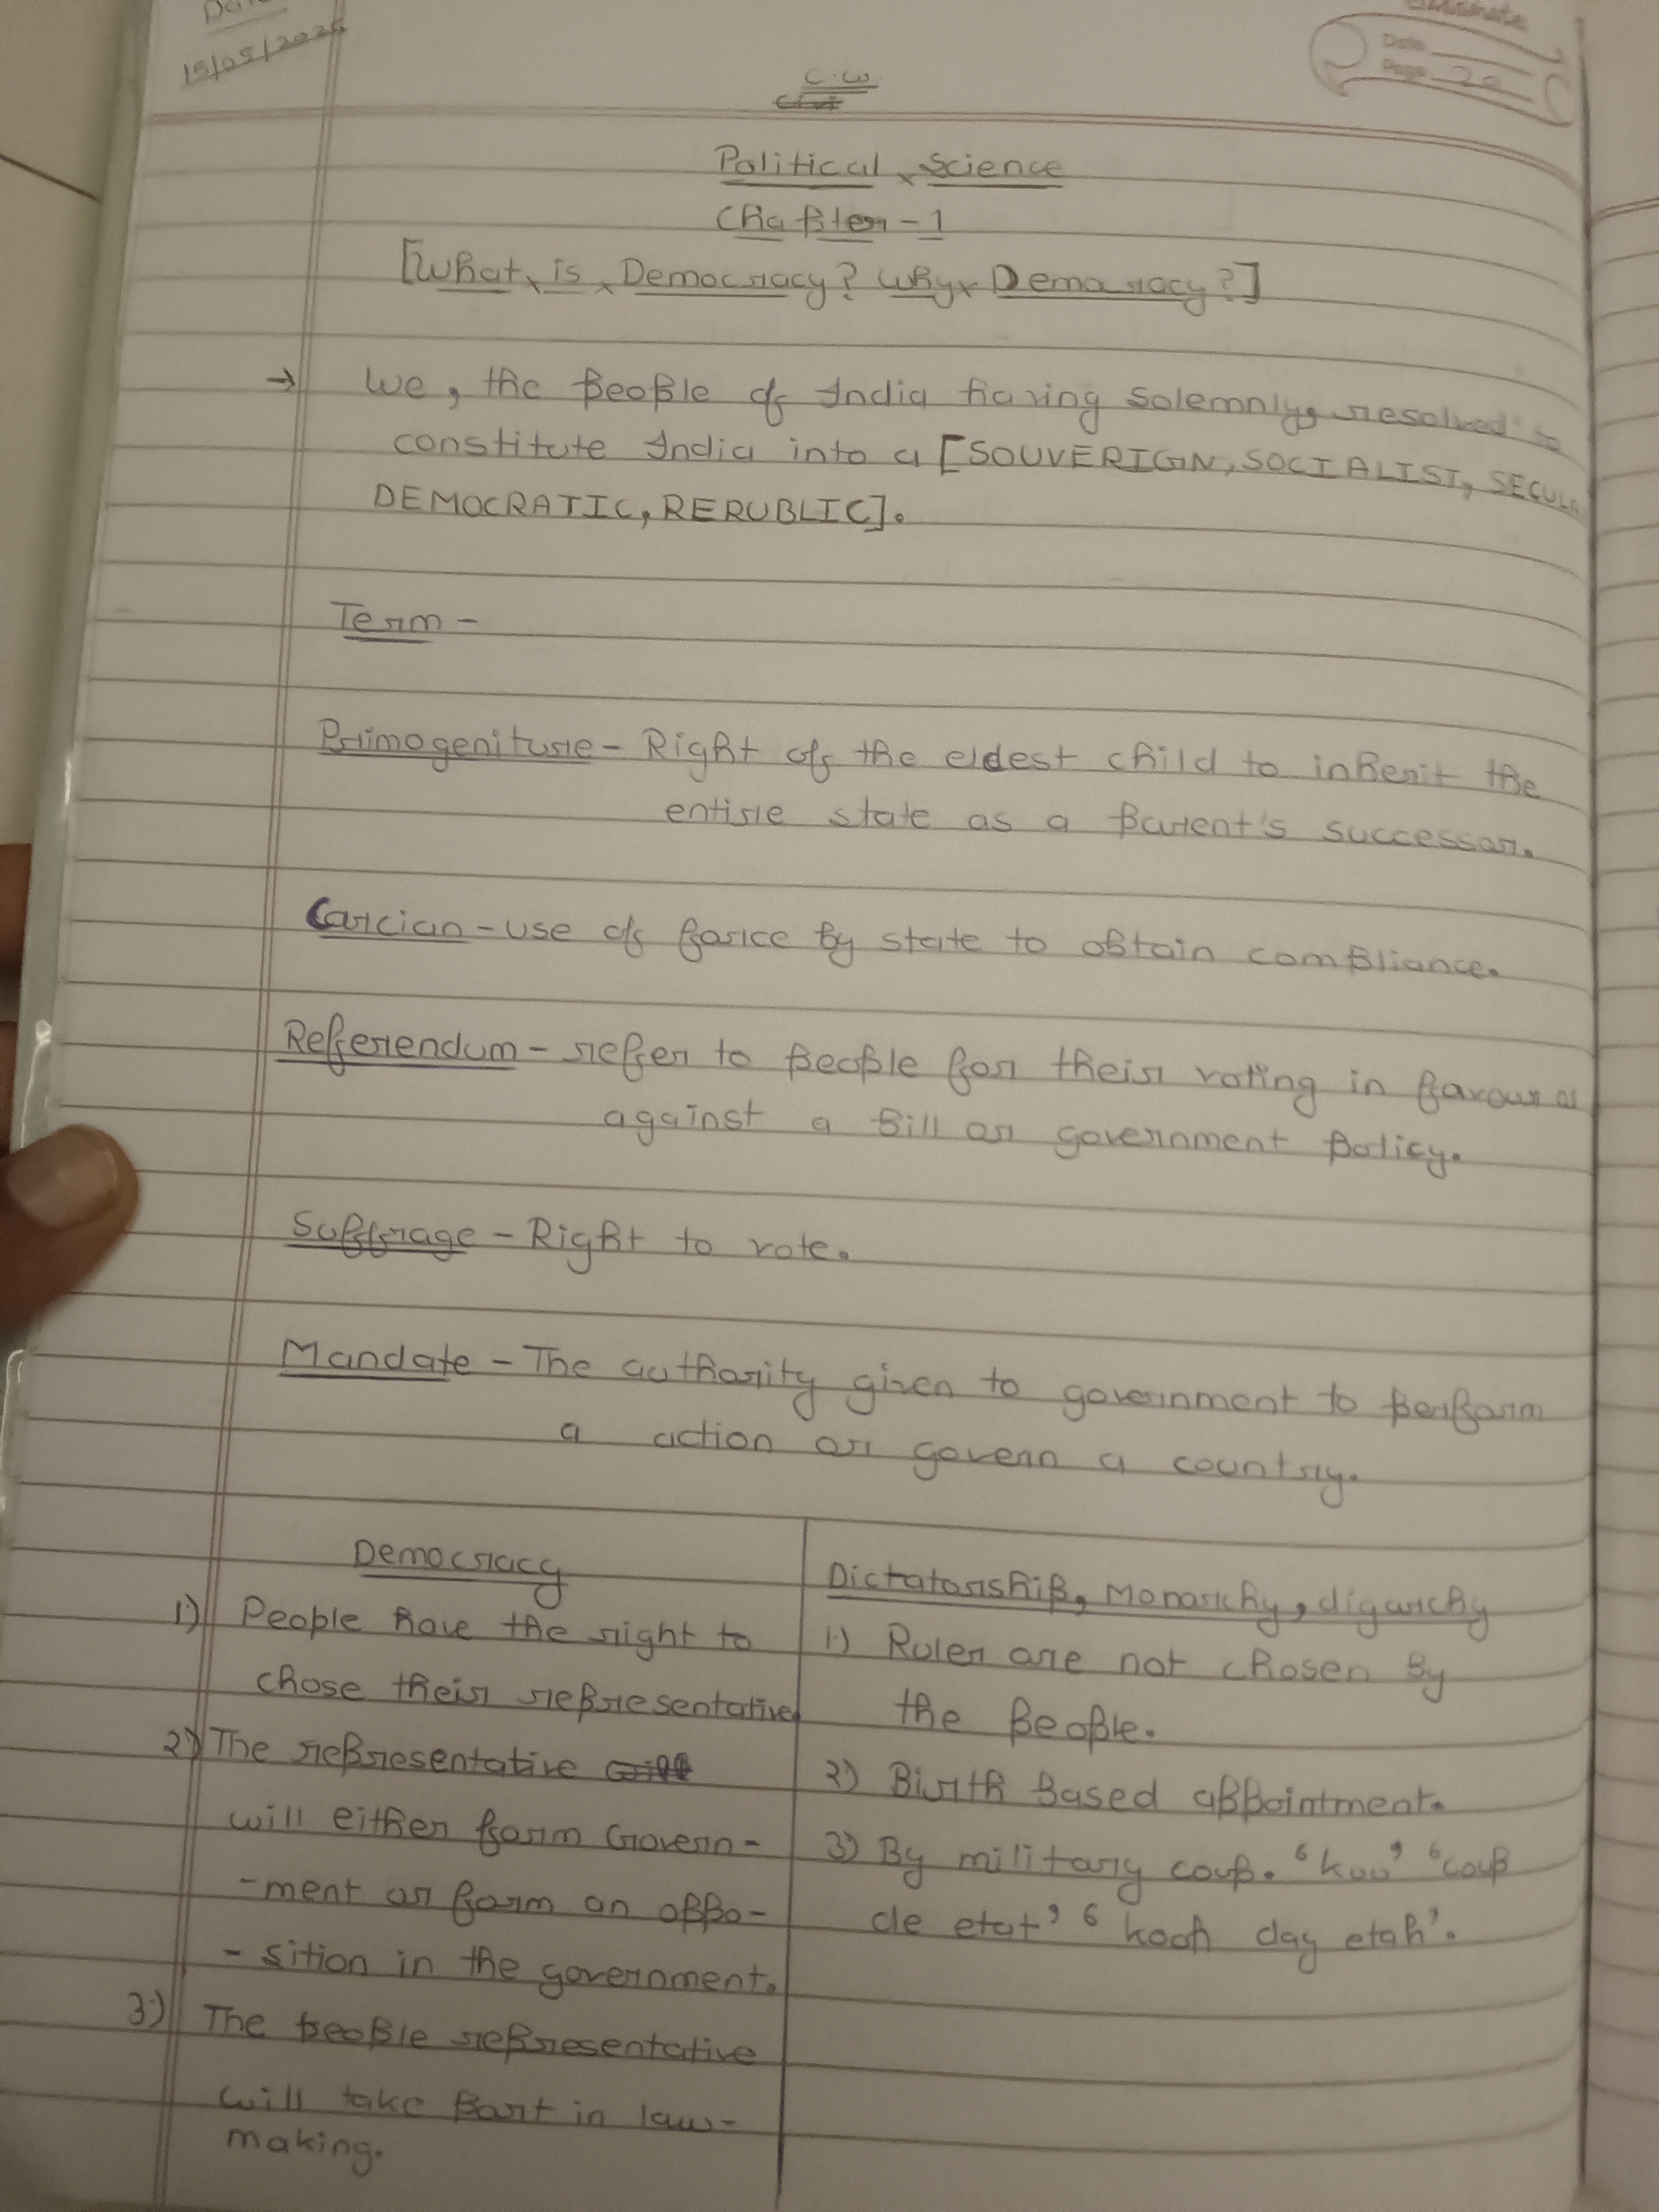 15/05/2025
classmate
Date
Page 20
C.W
Political Science
Chapter - 1
[What is Democracy? Why Democracy?]
→ We, the people of India having solemnly, resolved to
constitute India into a [SOUVERIGN, SOCIALIST, SECULA
DEMOCRATIC, RERUBLIC].
Term -
Primogeniture - Right of the eldest child to inherit the
entire state as a parent's successor.
Corcion - use of force by state to obtain compliance.
Referendum - refer to people for their voting in favour or
against a bill or government policy.
Suffrage - Right to vote.
Mandate - The authority given to government to perform
a action or govern a country.
Democracy
1) People have the right to
chose their representative
2) The representative
will either form Govern-
-ment or form an oppo-
-sition in the government.
3) The people representative
will take part in law-
making.
Dictatorship, Monarchy, oligarchy
1) Ruler are not chosen by
the people.
2) Birth based appointment.
3) By military coup. 'koo' 'coup
de etat' 'kooh day etah'.